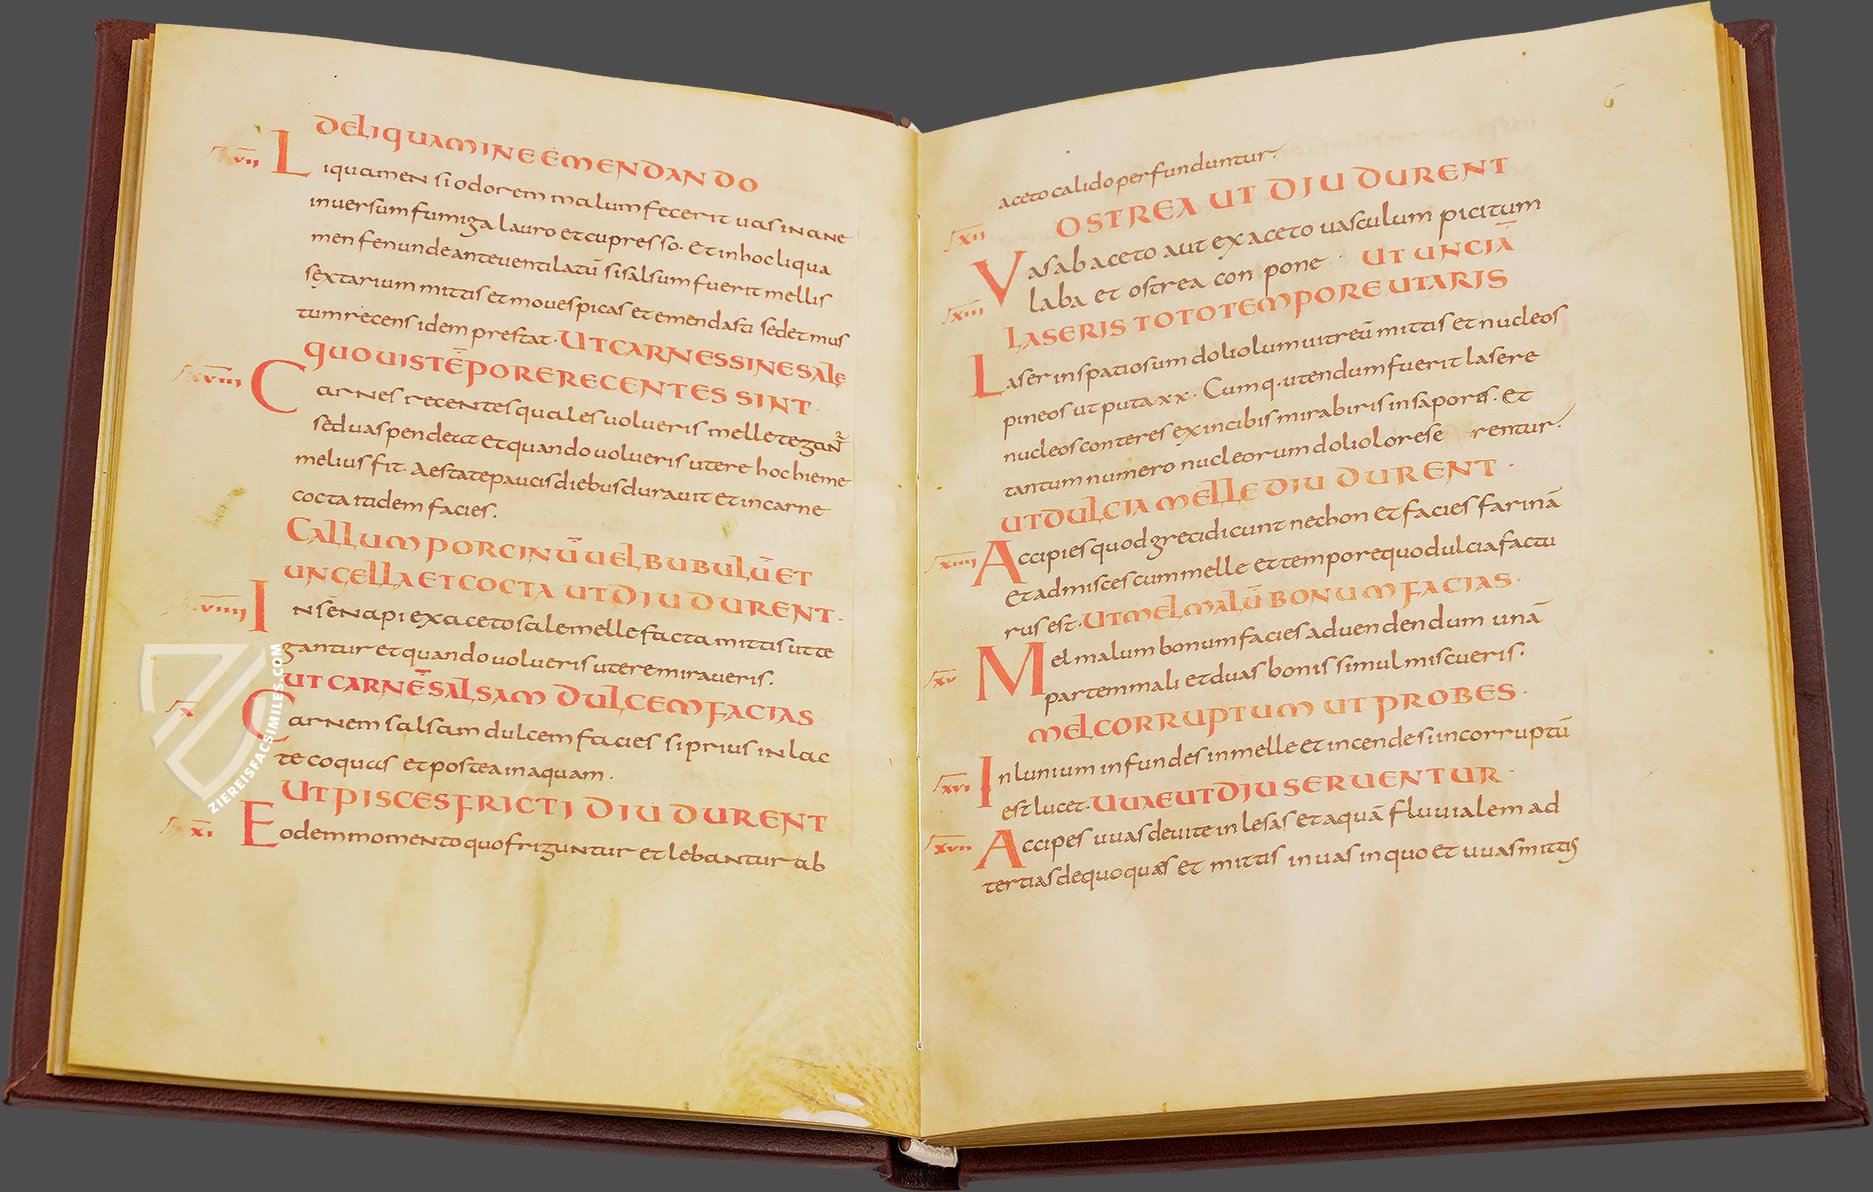 DELIQUAMINE EMENDANDO
VII Liquamen si odorem malum fecerit vas inane
inversum fumiga lauro et cupresso. Et in hoc liqua
men fenunde ante ventilatū si salsum fuerit mellis
sextarium mittis et moves picas et emendasti sed et mus
tum recens idem prestat. UT CARNES SINE SALE
QUOVIS TĒPORE RECENTES SINT.
VIII Carnes recentes quales volueris melle tegan
sed vas pendeat et quando volueris utere hoc hieme
melius fit. aestate paucis diebus duravit et in carne
cocta itidem facies.
CALLUM PORCINŪ VEL BUBULŪ ET
UNCELLAE ET COCTA UT DIU DURENT.
VIIII In senapi ex aceto sale melle facta mittis ut te
gantur et quando volueris utere miraveris.
UT CARNĒ SALSAM DULCEM FACIAS
X Carnem salsam dulcem facies si prius in lac
te coquas et postea in aquam.
UT PISCES FRICTI DIU DURENT
XI Eodem momento quo friguntur et lebantur ab
ZIEREISFACSIMILES.COM
6
aceto calido perfunduntur.
XII OSTREA UT DIU DURENT
Vas ab aceto aut ex aceto vasculum picitum
laba et ostrea con pone. UT UNCIĀ
XIII LASERIS TOTO TEMPORE UTARIS
Laser in spatiosum doliolum vitreū mittis et nucleos
pineos ut puta xx. Cumq. utendum fuerit lasere
nucleos conteres ex in cibis mirabiris in sapores. Et
tantum numero nucleorum doliolo rese rentur.
UT DULCIA MELLE DIU DURENT.
XIIII Accipies quod greci dicunt nechon et facies farinā
et admisces cum melle et tempore quo dulcia factu
rus est. UT MEL MALŪ BONUM FACIAS.
XV Mel malum bonum facies ad vendendum unā
partem mali et duas bonis simul miscueris.
MEL CORRUPTUM UT PROBES.
XVI In lunium infundes in melle et incende si incorruptū
est lucet. UVAE UT DIU SERVENTUR.
XVII Accipes uvas de vite inlesas et aquā fluvialem ad
tertias dequoquas et mittis in vas in quo et uvas mittis